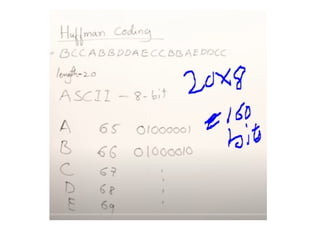 Huffman Coding
BCCABBDDAECCBBAEDDCC
length-20
ASCII - 8-bit
20x8
= 160
bits
A 65 01000001
B 66 01000010
C 67 '
D 68 '
E 69 '